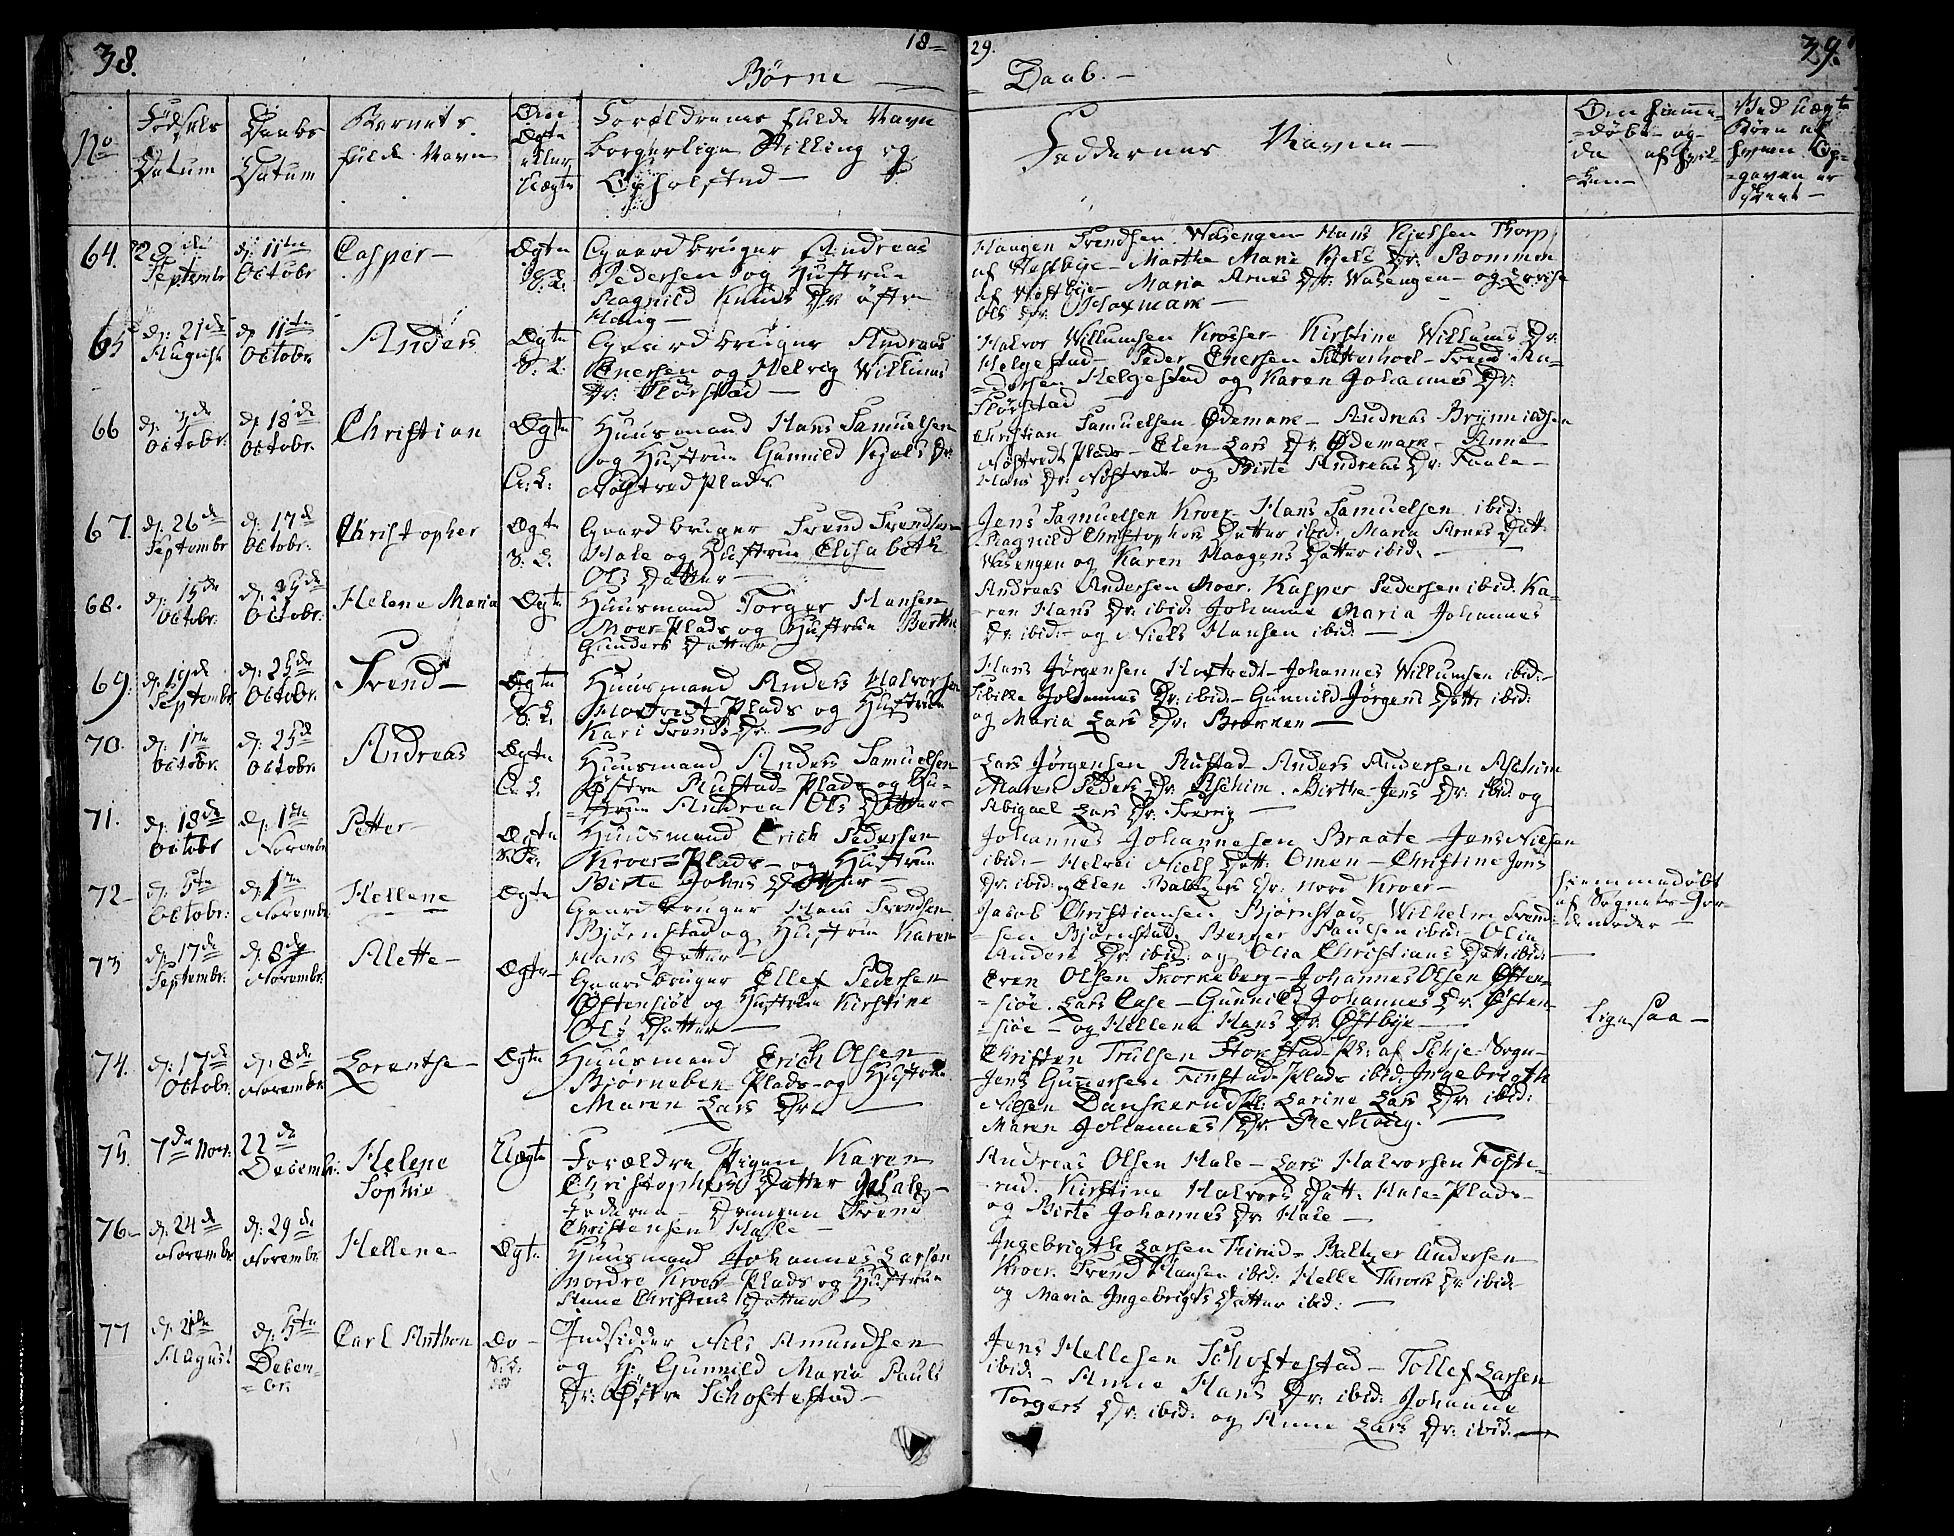 38.
18-
29.
39.
Børne
Daab.
No
Fødsels
Datum
Daabs
Datum
Barnets
fulde Navn
Ægte
eller
Uægte
Forældrenes fulde Navn
borgerlige Stilling og
Opholsted
Faddernes Navne
Om hjemme-
døbt og
da af hvil-
ken
Ved Uægte
Børn af
hvem Op-
gaven er
skeet
64. 22de Septembr d: 11te Octobr Casper Ægte S: L.
Gaardbruger Andreas
Pedersen og Hustrue
Ragnild Knuds Dr øftre
Haug
Haagen Svendsen Wasengen Hans Kjelsen Thorp
af Westbye Marthe Marie Niels Dr: Bommen
af Westbye Maria Arnes Dtr: Wasengen og Lovise
Ols Dr:
65 d: 21de August d: 11te Octobr. Anders Ægte S: L.
Gaardbruger Andreas
Enersen og Helvig Willums
Dr: Flørstad
Halvor Willumsen Krosser Kirstine Willums Dr:
Helgestad Peder Enersen Sætterhoel Svend An-
dersen Helgestad og Karen Johannes Dr:
Flørstad
66 d: 7de Octobr: d: 18de Octobr. Christian Ægte C: L:
Huusmand Hans Samuelsen
og Hustrue Gunnild Kjels Dr:
Nøstvedplads
Christian Samuelsen Ødemark Andreas Brynnildsen
Nøstvedt plads Elen Lars Dr: Ødemark Anne
Hans Dr: Nøstvedt og Birte Andreas Dr: Taale
67. d: 26de Septembr d: 17de Octobr: Christopher Ægte S: L.
Gaardbruger Svend Svendsen
Hale og Hustrue Elisabeth
Ols Datter
Jens Samuelsen Kroer Hans Samuelsen ibid:
Ragnild Christophers Datter ibid: Maria Arnes Datt:
Wasengen og Karen Haagens Datter ibid:
68. d: 15de Octobr. d: 25de Octobr: Helene Maria Ægte
Huusmand Torger Hansen
Moer Plads og Hustrue Berthe
Gunders Datter
Andreas Andersen Moer. Kasper Pedersen ibid: Ka-
ren Hans Dr: ibid: Johanne Maria Johannes
Dr: ibid: og Niels Hansen ibid:
69. d: 19de Septembr. d: 25de Octobr. Svend Ægte S: L.
Huusmand Anders Halvorsen
Hoxtvedt Plads og Hustrue
Kari Svends Dr:
Hans Jørgensen Hoxtvedt Johannes Willumsen ibid:
Sibille Johannes Dr: ibid: Gunnild Jørgens Datt: ibid:
og Maria Lars Dr:
70. d: 1te Octobr. d: 25de Octobr. Andreas Ægte C. L.
Huusmand Anders Samuelsen
Østre Rustad Plads og Hu-
strue Andrea Ols Datter
Lars Jørgensen Rustad Anders Andersen Aschim
Maren Peders Dr: Aschim. Birthe Jens Dr: ibid: og
Abigael Lars Dr:
71. d: 18de Octobr d: 1te Novembr Petter Ægte
Huusmand Erich Pedersen
Kroer Plads og Hustrue
Birte Johns Datter
Johannes Johannesen Braate Jens Nielsen
ibid: Helvei Niels Datt: Omen Christine Jens
Dr: ibid: og Elen Baltzers Dr: nord Kroer
72 d: 5te Octobr: d: 1te Novembr. Hellene Ægte
Gaardbruger Hans Svendsen
Bjørnstad og Hustrue Karen
Hans Datter
Jacob Christiansen Bjørnstad Wilhelm Svend-
sen Bjørnstad Berger Paulsen ibid: Olia
Anders Dr: ibid: og Olia Christians Datt: ibid:
hjemmedøbt
af Sognets Jor-
demoder
73 d: 17de Septembr: d: 8de Novembr. Alette Ægte
Gaardbruger Ellef Pedersen
Østensiøe og Hustrue Kirstine
Ols Datter
Even Olsen Skorkeberg Johannes Olsen Østen-
siøe. Lars Case Gunnild Johannes Dr: Østen-
siøe og Hellena Hans Dr: Østbye
ligesaa
74. d: 17de Octobr. d: 8de Novembr. Lorentse Ægte
Huusmand Erich Olsen
Bjørnebek Plads og Hustrue
Maren Lars Dr:
Christen Trulsen Storstad Pl: af Schje Sogn
Jens Gunersen Finstad Plads ibid: Ingebrigth
Nilsen Danskerud Karine Lars Dr: ibid:
Maren Johannes Dr Revhoug.
75. 7de Novr: 22de Decembr: Helene Sophie Uægte
Forældre Pigen Karen
Christophers Datter Hale
Christensen Hasle
Andreas Olsen Hale Lars Halvorsen Foste-
rud. Kirstine Halvors Datt: Hale Plads
og Birte Johannes Dr Hale
76 d: 24de Novembr. d: 29de Novembr. Hellene Ægte
Huusmand Johannes Larsen
nordre Kroer Plads og Hustrue
Anne Christens Datter
Ingebrigth Larsen Thirud Baltzer Andersen
Kroer. Svend Hansen ibid: Helle Thores Dr: ibid:
og Maria Ingebrigts Datter ibid:
77 d: 21de August d: 5te Decem-br: Carl Anthon do S: L:
Indsidder Nils Amundsen
og H: Gunnild Maria Pauls
Dr: Østre Schoftestad
Jens Hellesen Schoftestad Tollef Larsen
ibid: Anne Hans Dr: ibid: Johanne
Torgers Dr: ibid: og Anne Lars Dr: ibid: